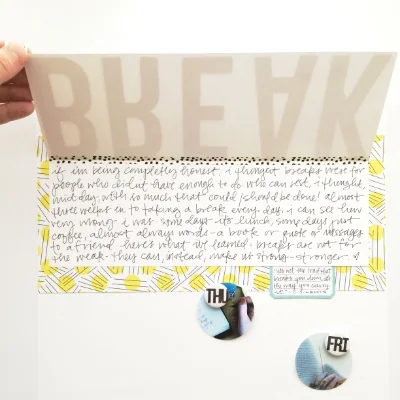 BREAK
if i'm being completely honest, i thought breaks were for
people who didn't have enough to do. who can rest, i thought,
mid day, with so much that could/should be done? almost
three weeks in to taking a break every day, i can see how
very wrong i was. some days its lunch, some days just
coffee, almost always words - a book or quote or messages
to a friend. here's what i've learned - breaks are not for
the weak - they can, instead, make us strong - stronger.
its not the load that
breaks you down its
the way you carry
it
THU
FRI